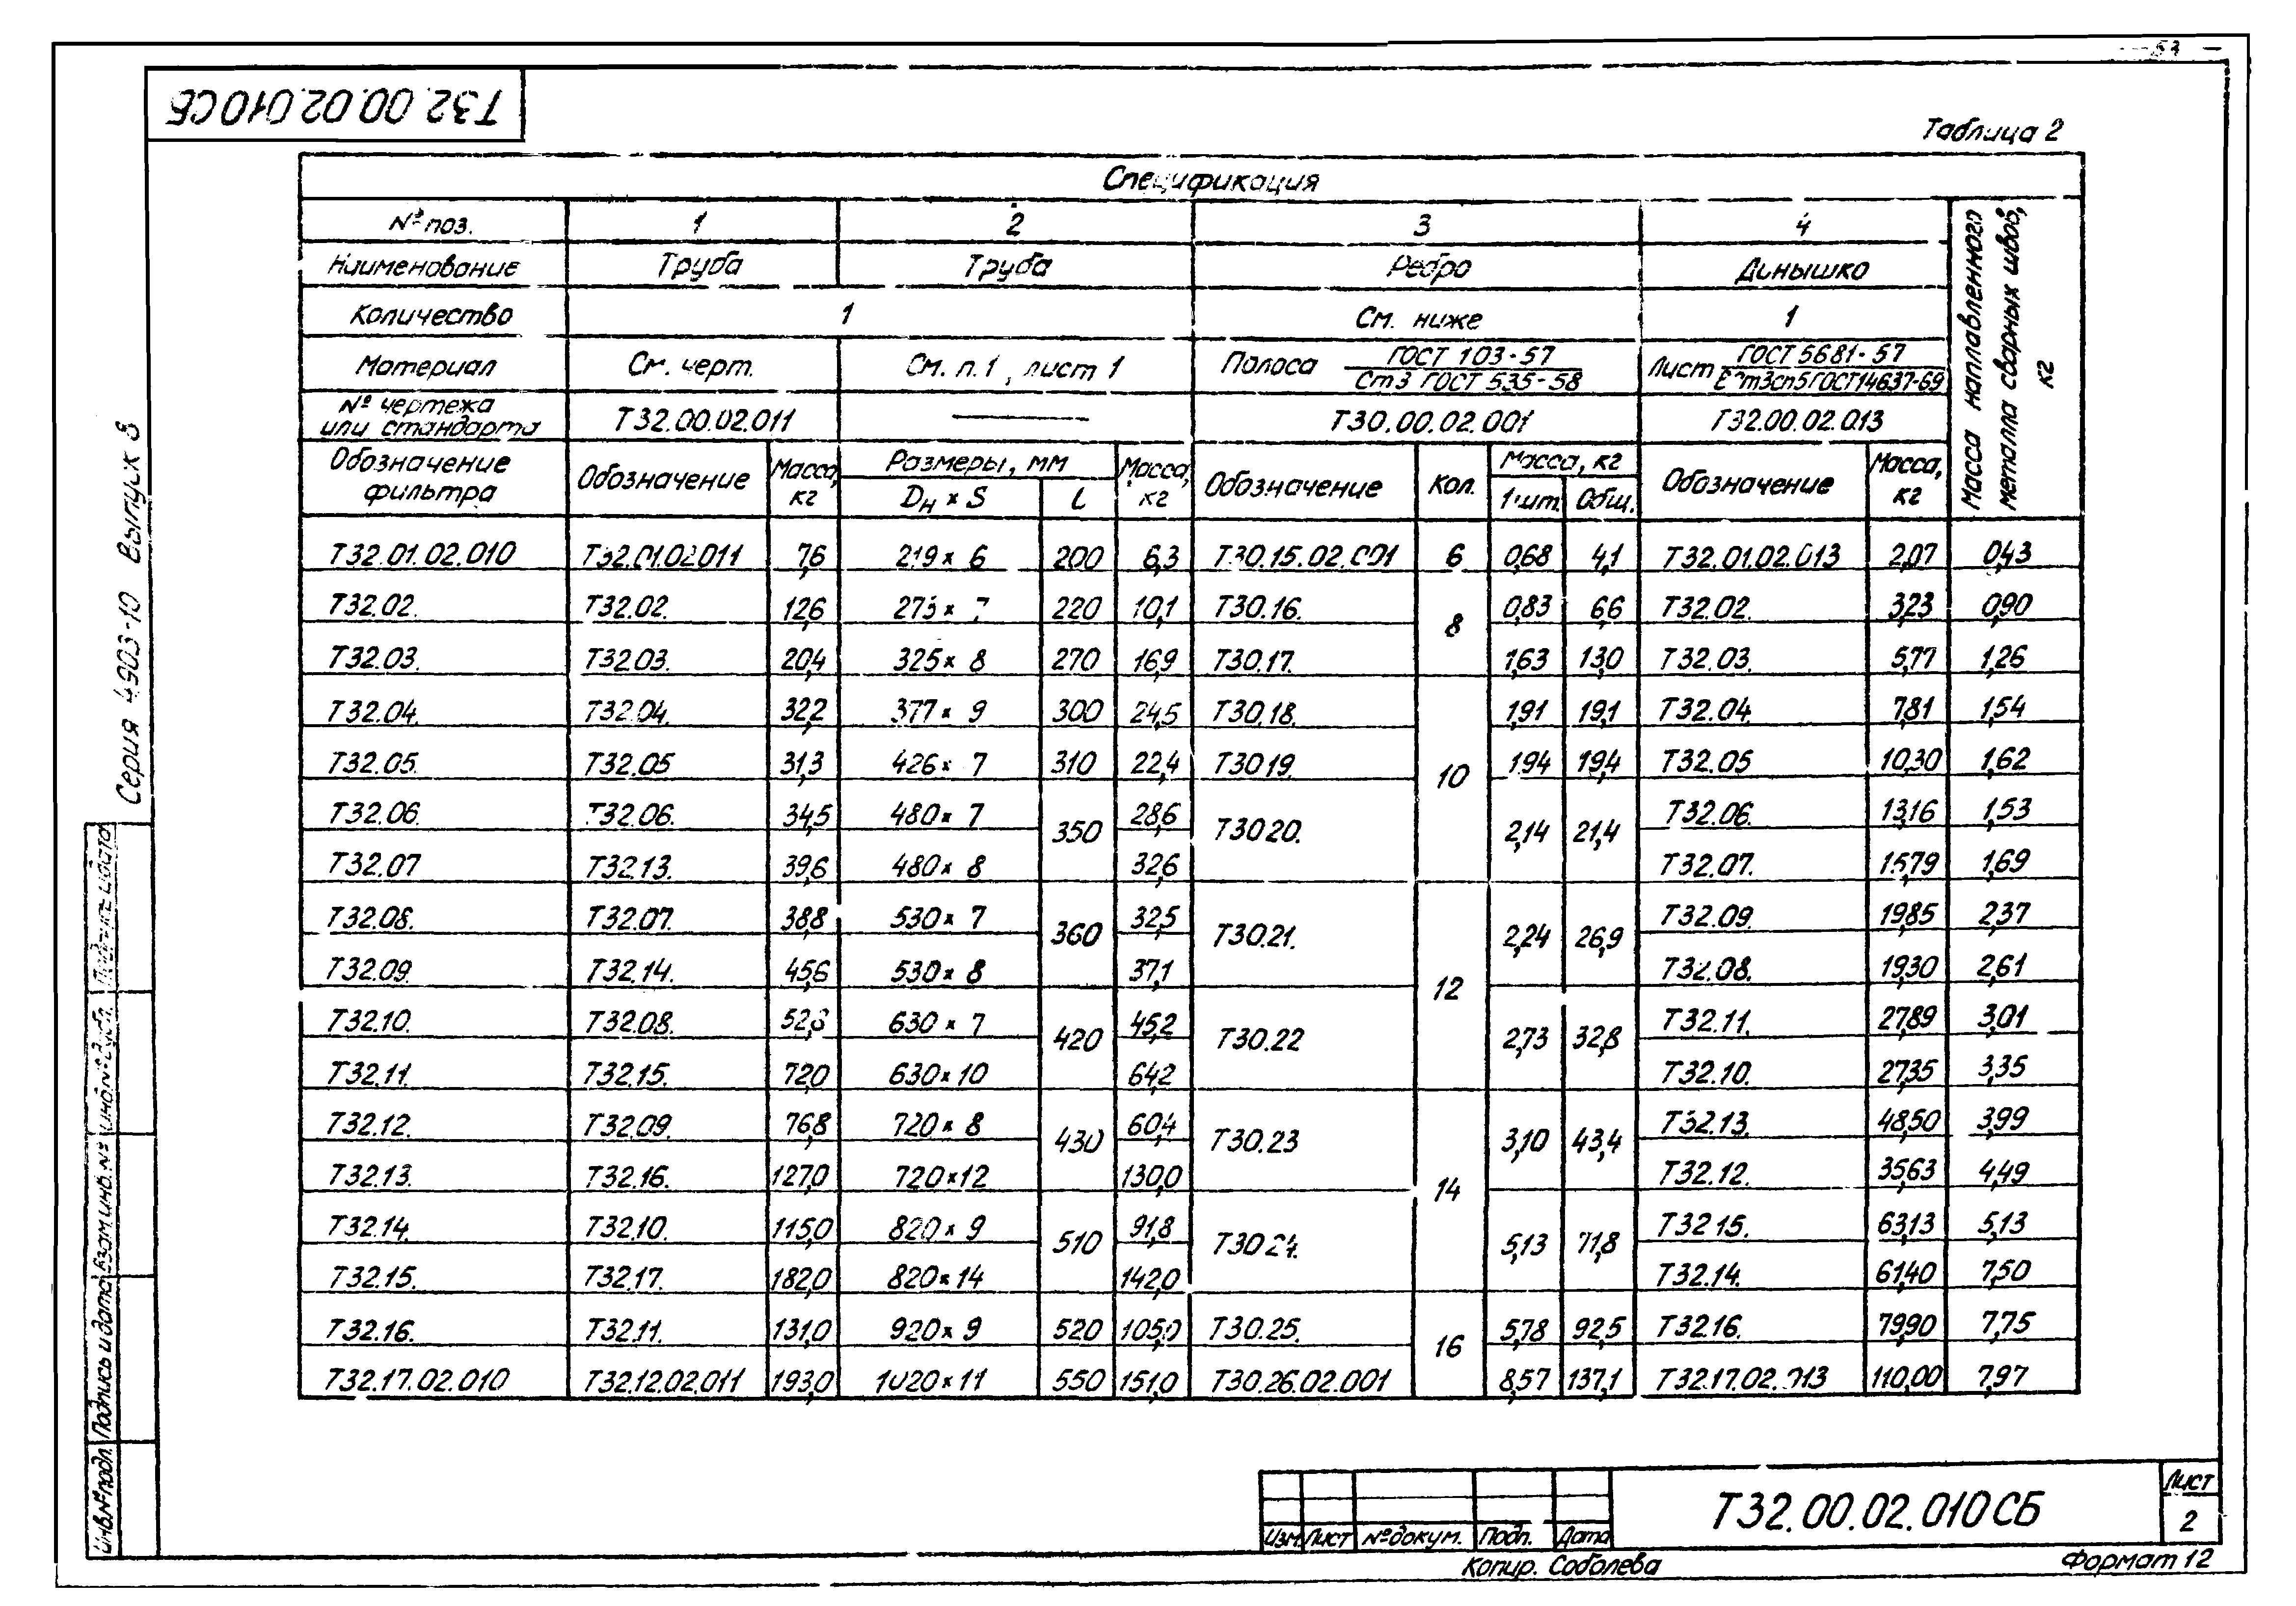 53
Т32.00.02.010СБ
Таблица 2
Спецификация
№ поз. 1 2 3 4
Наименование Труба Труба Ребро Динышко
Количество 1 См. ниже 1
Материал См. черт. См. п.1, лист 1 Полоса ГОСТ 103-57 / Ст3 ГОСТ 535-58 Лист ГОСТ 5681-57 / ВСт3сп5 ГОСТ 14637-69
№ чертежа или стандарта Т32.00.02.011 — Т30.00.02.001 Т32.00.02.013
Масса наплавленного металла сварных швов, кг
Обозначение фильтра Обозначение Масса, кг Размеры, мм Масса, кг Обозначение Кол. Масса, кг Обозначение Масса, кг
Dн × S L 1 шт. Общ.
Т32.01.02.010 Т32.01.02.011 7,6 219 × 6 200 6,3 Т30.15.02.001 6 0,68 4,1 Т32.01.02.013 2,07 0,43
Т32.02. Т32.02. 12,6 273 × 7 220 10,1 Т30.16. 8 0,83 6,6 Т32.02. 3,23 0,90
Т32.03. Т32.03. 20,4 325 × 8 270 16,9 Т30.17. 1,63 13,0 Т32.03. 5,77 1,26
Т32.04. Т32.04. 32,2 377 × 9 300 24,5 Т30.18. 10 1,91 19,1 Т32.04. 7,81 1,54
Т32.05. Т32.05 31,3 426 × 7 310 22,4 Т30.19. 1,94 19,4 Т32.05 10,30 1,62
Т32.06. Т32.06. 34,5 480 × 7 350 28,6 Т30.20. 2,14 21,4 Т32.06. 13,16 1,53
Т32.07 Т32.13. 39,6 480 × 8 32,6 Т32.07. 15,79 1,69
Т32.08. Т32.07. 38,8 530 × 7 360 32,5 Т30.21. 12 2,24 26,9 Т32.09. 19,85 2,37
Т32.09. Т32.14. 45,6 530 × 8 37,1 Т32.08. 19,30 2,61
Т32.10. Т32.08. 52,8 630 × 7 420 45,2 Т30.22 2,73 32,8 Т32.11. 27,89 3,01
Т32.11. Т32.15. 72,0 630 × 10 64,2 Т32.10. 27,35 3,35
Т32.12. Т32.09. 76,8 720 × 8 430 60,4 Т30.23 14 3,10 43,4 Т32.13. 48,50 3,99
Т32.13. Т32.16. 127,0 720 × 12 130,0 Т32.12. 35,63 4,49
Т32.14. Т32.10. 115,0 820 × 9 510 91,8 Т30.24. 5,13 71,8 Т32.15. 63,13 5,13
Т32.15. Т32.17. 182,0 820 × 14 142,0 Т32.14. 61,40 7,50
Т32.16. Т32.11. 131,0 920 × 9 520 105,0 Т30.25. 16 5,78 92,5 Т32.16. 79,90 7,75
Т32.17.02.010 Т32.12.02.011 193,0 1020 × 11 550 151,0 Т30.26.02.001 8,57 137,1 Т32.17.02.013 110,00 7,97
Серия 4.903-10 Выпуск 8
Инв. № подл. Подпись и дата Взам. инв. № Инв. № дубл. Подпись и дата
Изм. Лист № докум. Подп. Дата
Т32.00.02.010СБ
Лист
2
Копир. Соболева
Формат 12